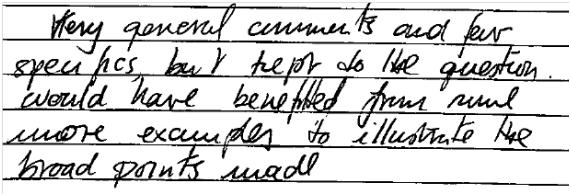 Very general comments and few
specifics, but kept to the question.
Would have benefitted from some
more examples to illustrate the
broad points made